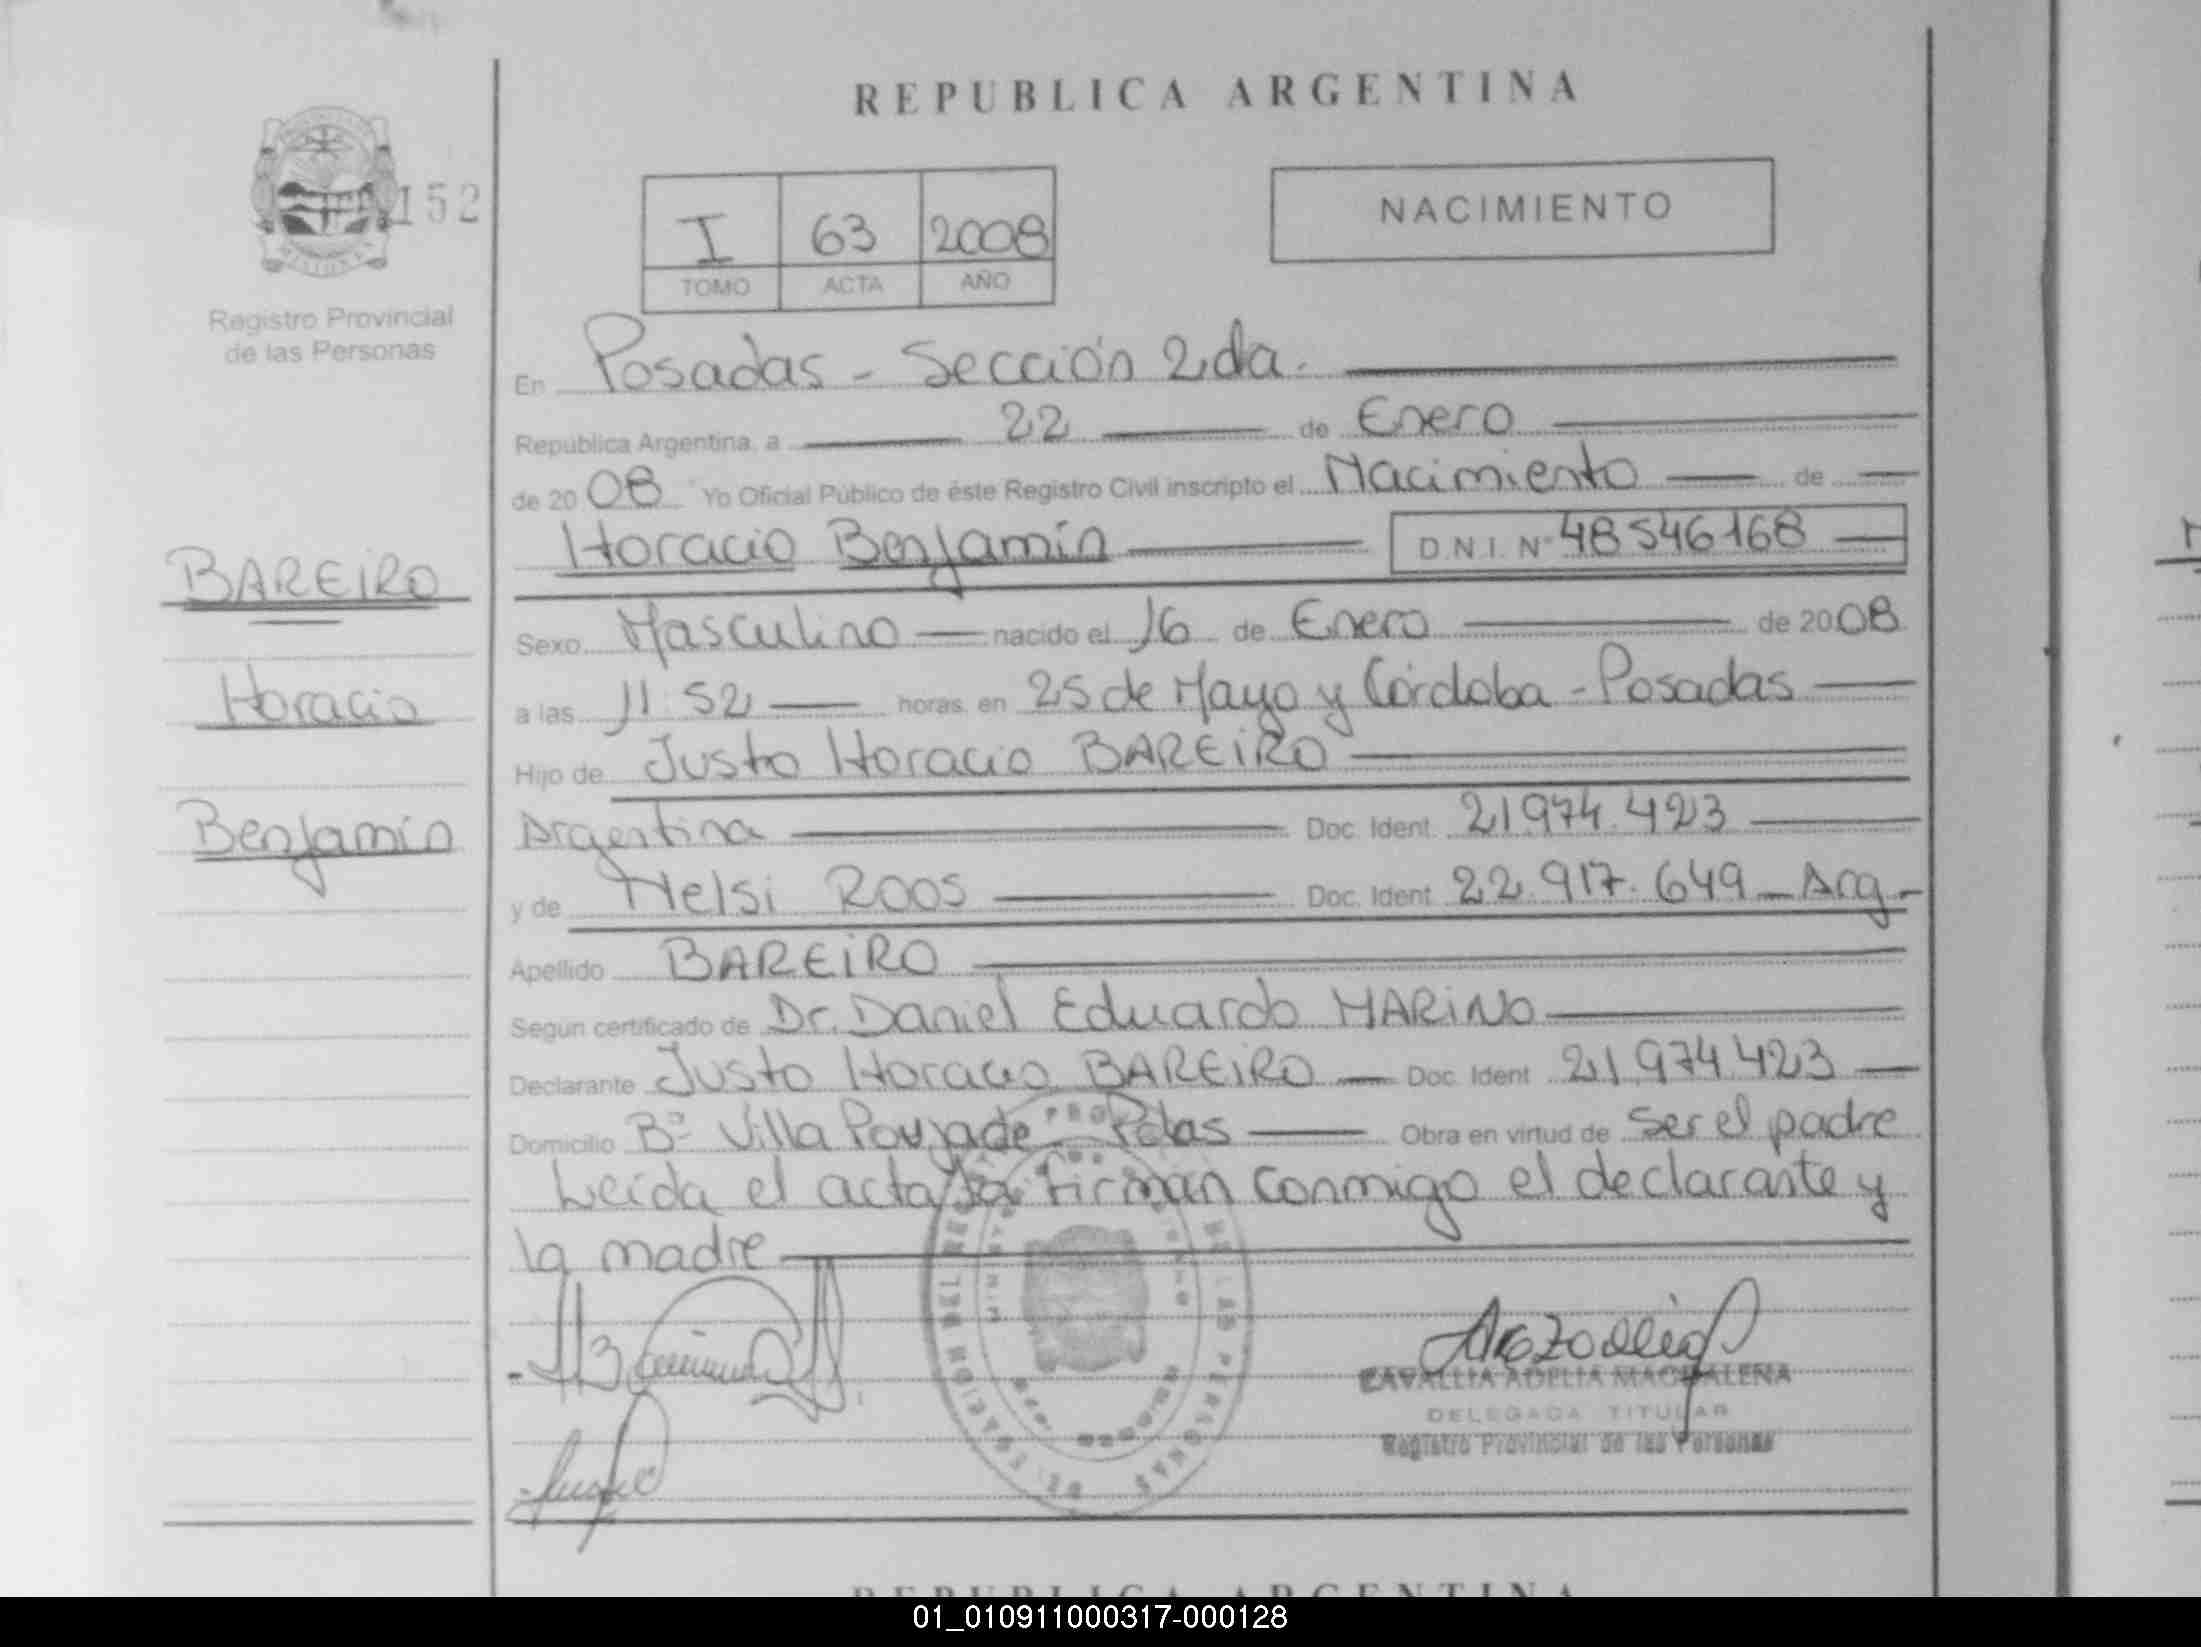 REPUBLICA ARGENTINA
152
MISIONES
Registro Provincial
de las Personas
I 63 2008
TOMO ACTA AÑO
NACIMIENTO
En Posadas - Sección 2da.
Republica Argentina, a 22 de Enero
de 2008 Yo Oficial Público de éste Registro Civil inscripto el Nacimiento de
Horacio Benjamín D.N.I. Nº 48546168
BAREIRO
Horacio
Benjamín
Sexo Masculino nacido el 16 de Enero de 2008
a las 11:52 horas en 25 de Mayo y Córdoba - Posadas
Hijo de Justo Horacio BAREIRO
Argentina Doc. Ident. 21.974.423
y de Nelsi ROOS Doc. Ident. 22.917.649 - Arg -
Apellido BAREIRO
Segun certificado de Dr. Daniel Eduardo MARINO
Declarante Justo Horacio BAREIRO Doc. Ident. 21.974.423
Domicilio Bº Villa Poujade - Pdas Obra en virtud de ser el padre
Leída el acta la firman conmigo el declarante y
la madre
ZAVALLIA ADELIA MAGDALENA
DELEGADA TITULAR
Registro Provincial de las Personas
REPUBLICA ARGENTINA
01_010911000317-000128